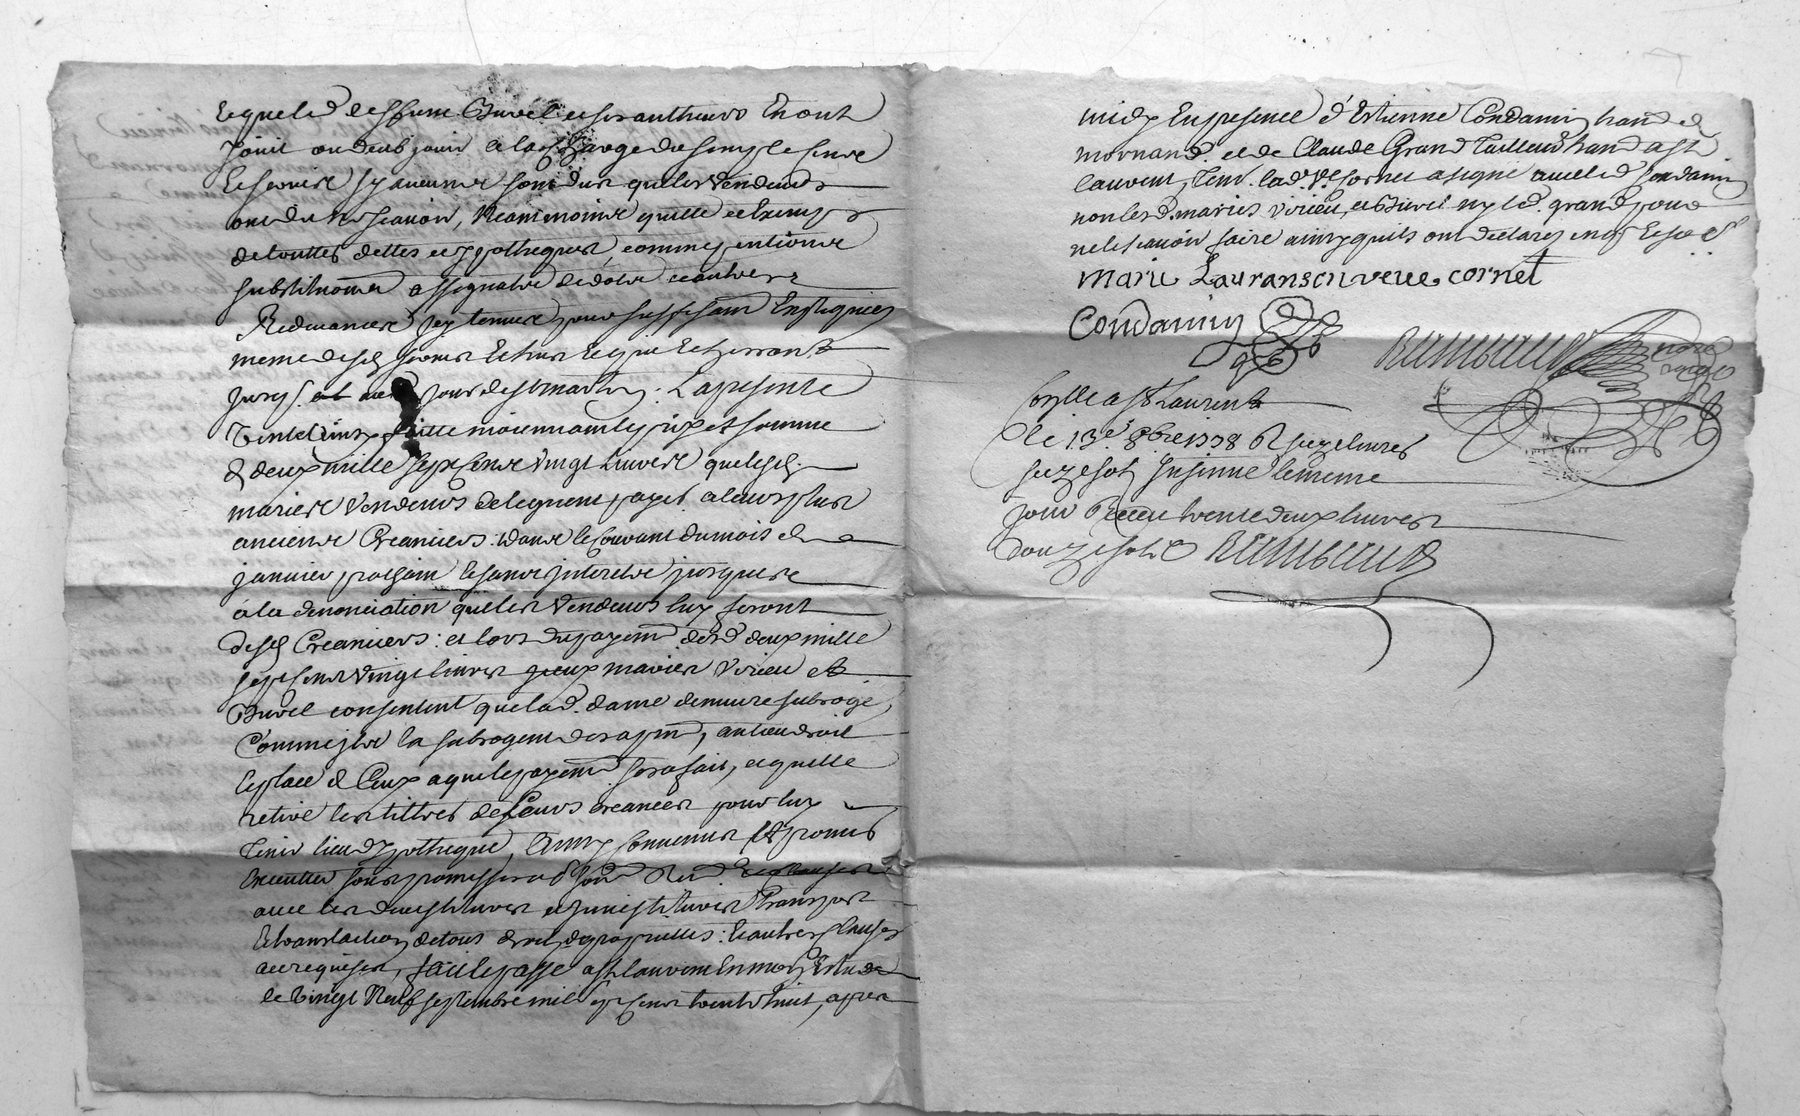 et que led deffunt Burel et ses autheurs en ont
joüit ou deub joüir a la charge du simple cens
et servis sy aucun se sont dus que les vendeurs
ont dit ne scavoir, neanmoins quitte et exempt
de touttes dettes et ypotheques, commissentions
substitutions assignatte de dote et autres
même desd servis
jour de st martin. La presente
vente ainsy faitte moiennant le prix et somme
de deux mille sept cens vingt livres que lesd
mariés vendeurs deleguent payer a leurs plus
anciens creanciers: dans le courant du mois de
janvier prochain le sans interets jusques
a la denonciation que les vendeurs luy feront
desd creanciers: et lors du payemt desd deux mille
sept cens vingt livres iceux mariés Virieu et
Burel consentent que lad. dame demeure subrogé,
comme ils la subrogent des a pnt, au lieu droit
et place de ceux a qui le payemt sera fait, et quelle
retire les tittres de leurs creances pour luy
tenir lieu dypotheque, ainsy convenus et promis
executter sous promesses
avec les devestitures et investitures transport
et translation de tous droits de proprietté: et autres clauses
au requises, fait et passé a st laurent en mon etude
le vingt neuf septembre mil sept cens trente huit, apres
midy en presence d'Estienne Condamin hand de
mornand. et de Claude Grand tailleur hand a st
laurent, tem. lad. ve Cornet a signé avec led Condamin
non lesd. mariés virieu, et Burel ny led. grand pour
ne le scavoir faire ainsy quils ont declarez
marie Lauranson veuve cornet
Condamin
Rambaud
Conlle a st Laurent
le 13e 8bre 1738 R seize livres
seize sols Insinué le meme
jour Receu trente deux livres
douze sols Rambaud